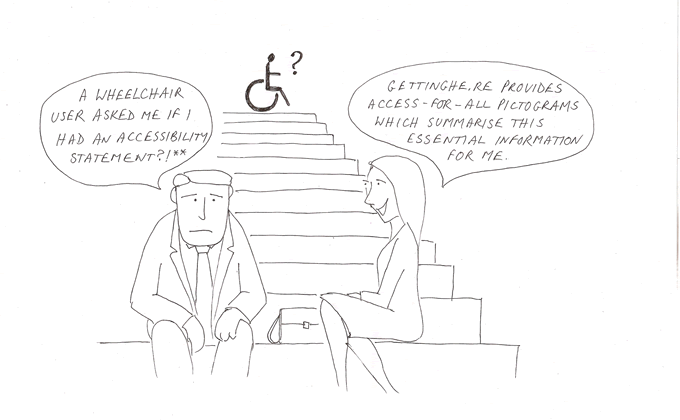 ?
A WHEELCHAIR
USER ASKED ME IF I
HAD AN ACCESSIBILITY
STATEMENT?!**
GETTINGHE.RE PROVIDES
ACCESS-FOR-ALL PICTOGRAMS
WHICH SUMMARISE THIS
ESSENTIAL INFORMATION
FOR ME.